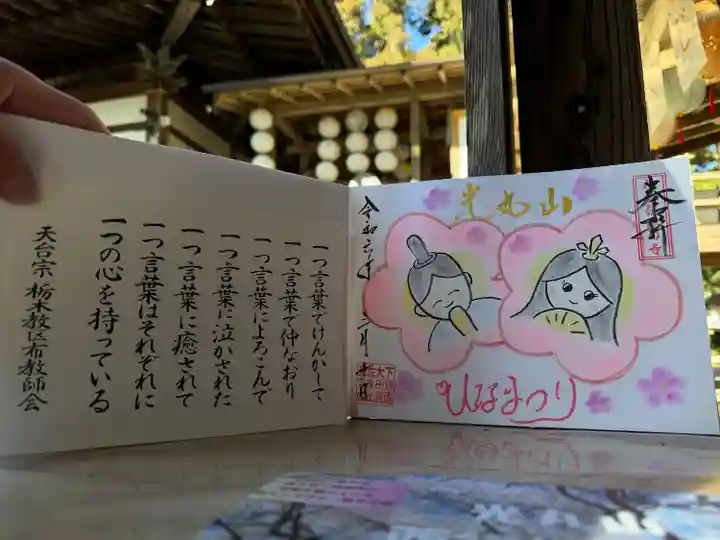 一つ言葉でけんかして
一つ言葉で仲なおり
一つ言葉によろこんで
一つ言葉に泣かされた
一つ言葉に癒されて
一つ言葉はそれぞれに
一つの心を持っている
天台宗 栃木教区布教師会
奉拝
光丸山
ひなまつり
令和六年
二月